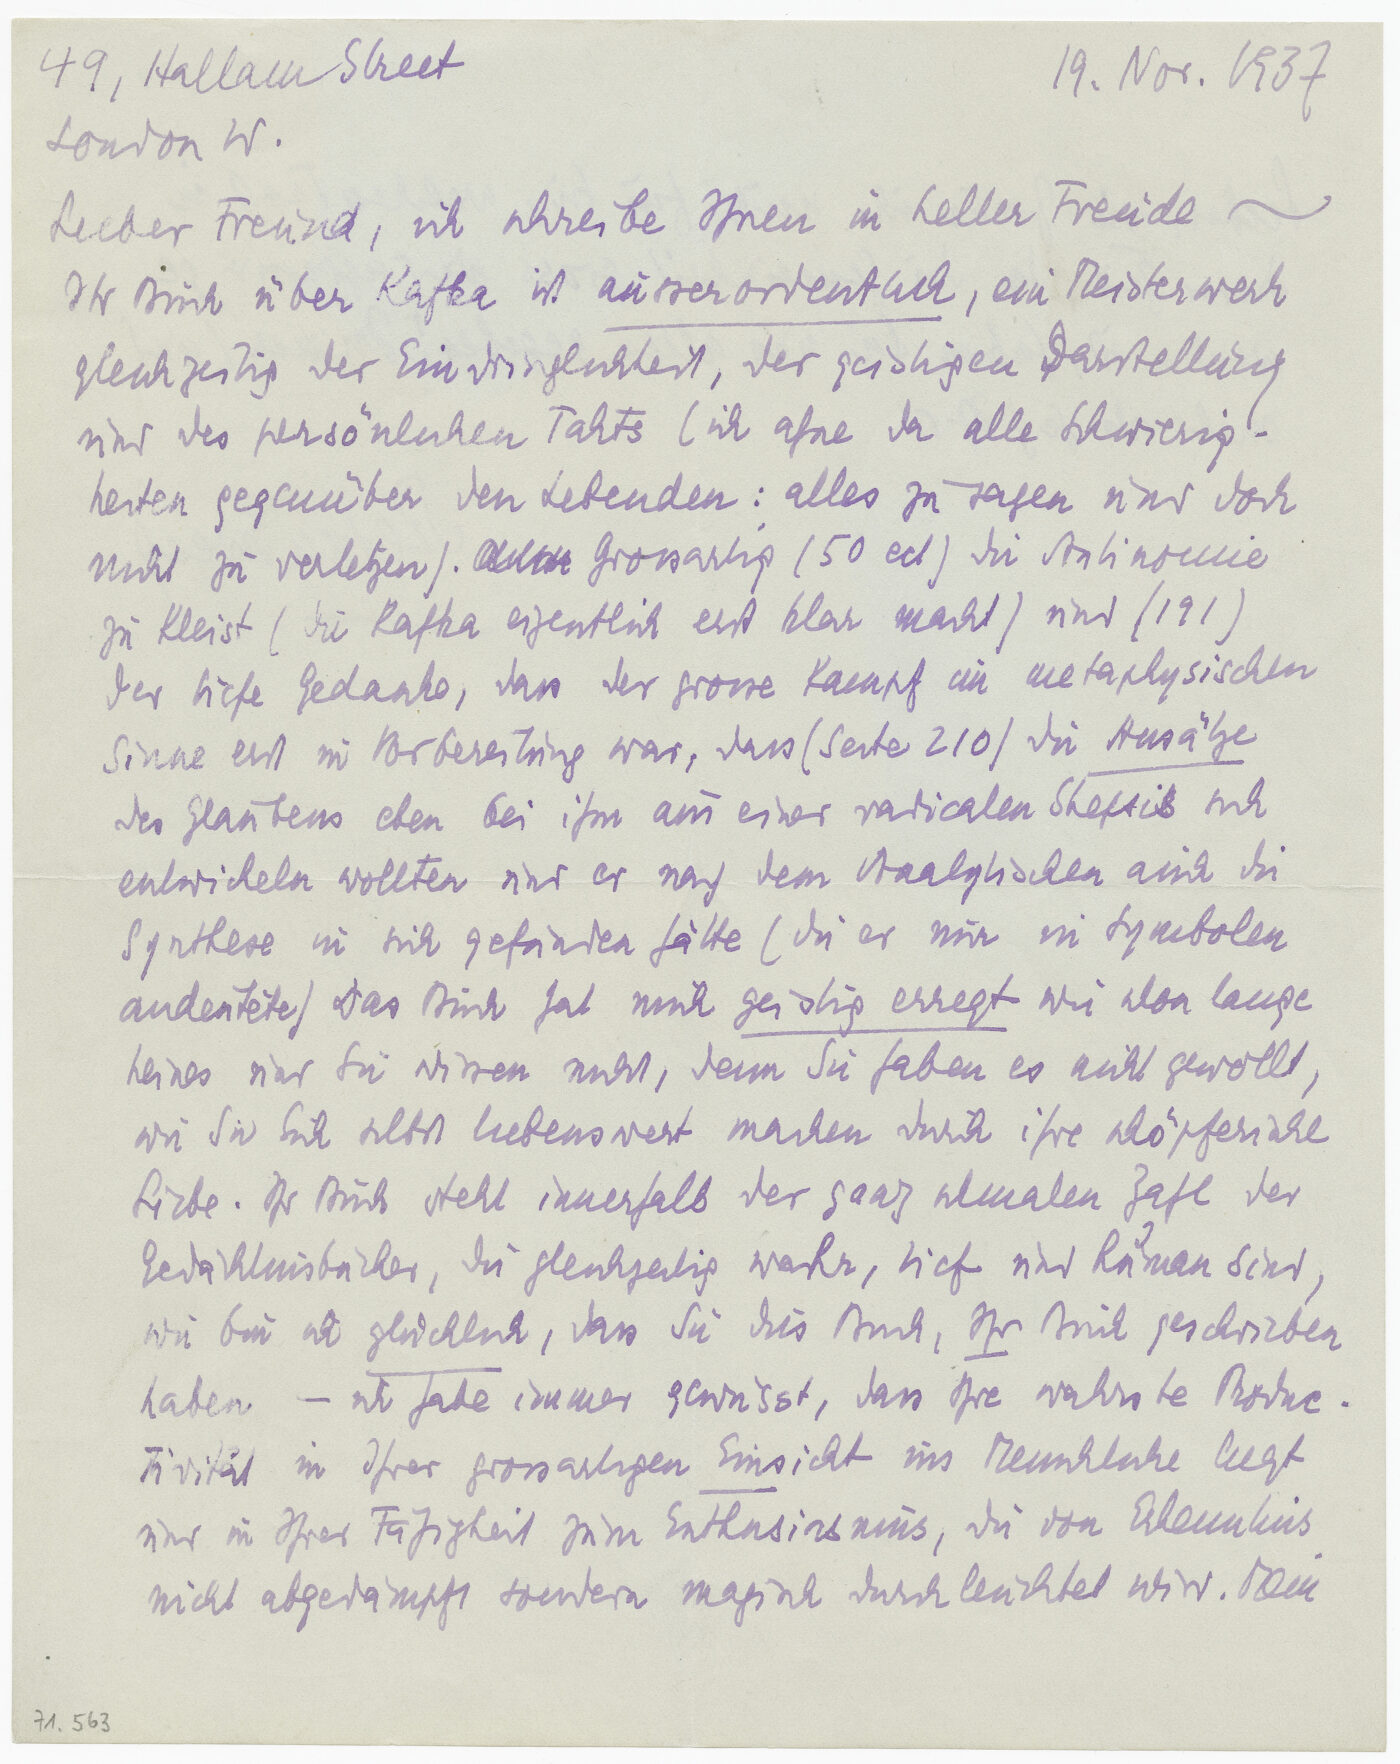 49, Hallam Street
19. Nov. 1937
London W.
Lieber Freund, ich schreibe Ihnen in heller Freude
Ihr Buch über Kafka ist ausserordentlich, ein Meisterwerk
gleichzeitig der Eindringlichkeit, der geistigen Darstellung
und des persönlichen Takts (ich ahne da alle Schwierig-
keiten gegenüber den Lebenden: alles zu sagen und doch
nicht zu verletzen). Grossartig (50 ect) die Antinomie
zu Kleist (die Kafka eigentlich erst klar macht) und (191)
der tiefe Gedanke, dass der grosse Kampf im metaphysischen
Sinne erst in Vorbereitung war, dass (Seite 210) die Ansätze
des Glaubens eben bei ihm aus einer radicalen Skepsis sich
entwickeln wollten und er nach dem Analytischen auch die
Synthese in sich gefunden hätte (die er nur in Symbolen
andeutete) Das Buch hat mich geistig erregt wie schon lange
keines und Sie wissen nicht, denn Sie haben es nicht gewollt,
wie Sie Sich selbst liebenswert machen durch ihre schöpferische
Liebe. Ihr Buch steht innerhalb der ganz schmalen Zahl der
Gedächtnisbücher, die gleichzeitig wahr, tief und human sind,
wie bin ich glücklich, dass Sie dies Buch, Ihr Buch geschrieben
haben — ich habe immer gewusst, dass Ihre wahrste Produc-
tivität in Ihrer grossartigen Einsicht ins Menschliche liegt
und in Ihrer Fähigkeit zum Enthusiasmus, die von Erkenntnis
nicht abgedämpft sondern magisch durchleuchtet wird. Mein
71.563